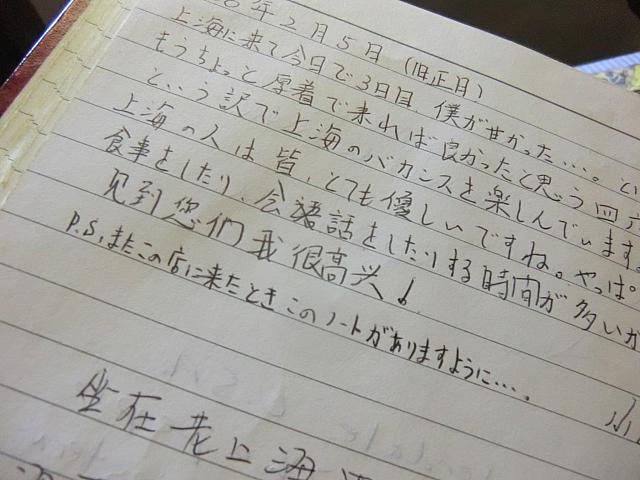 8年2月5日(旧正月)
上海に来て今日で3日目、僕が甘かった…。とい
もうちょっと厚着で来れば良かったと思う四
という訳で上海のバカンスを楽しんでいます。
上海の人は皆、とても優しいですね。やっぱ。
食事をしたり、会話をしたりする時間が多いか
见到您们我很高兴!
P.S.またこの店に来たときこのノートがありますように…。
坐在老上海